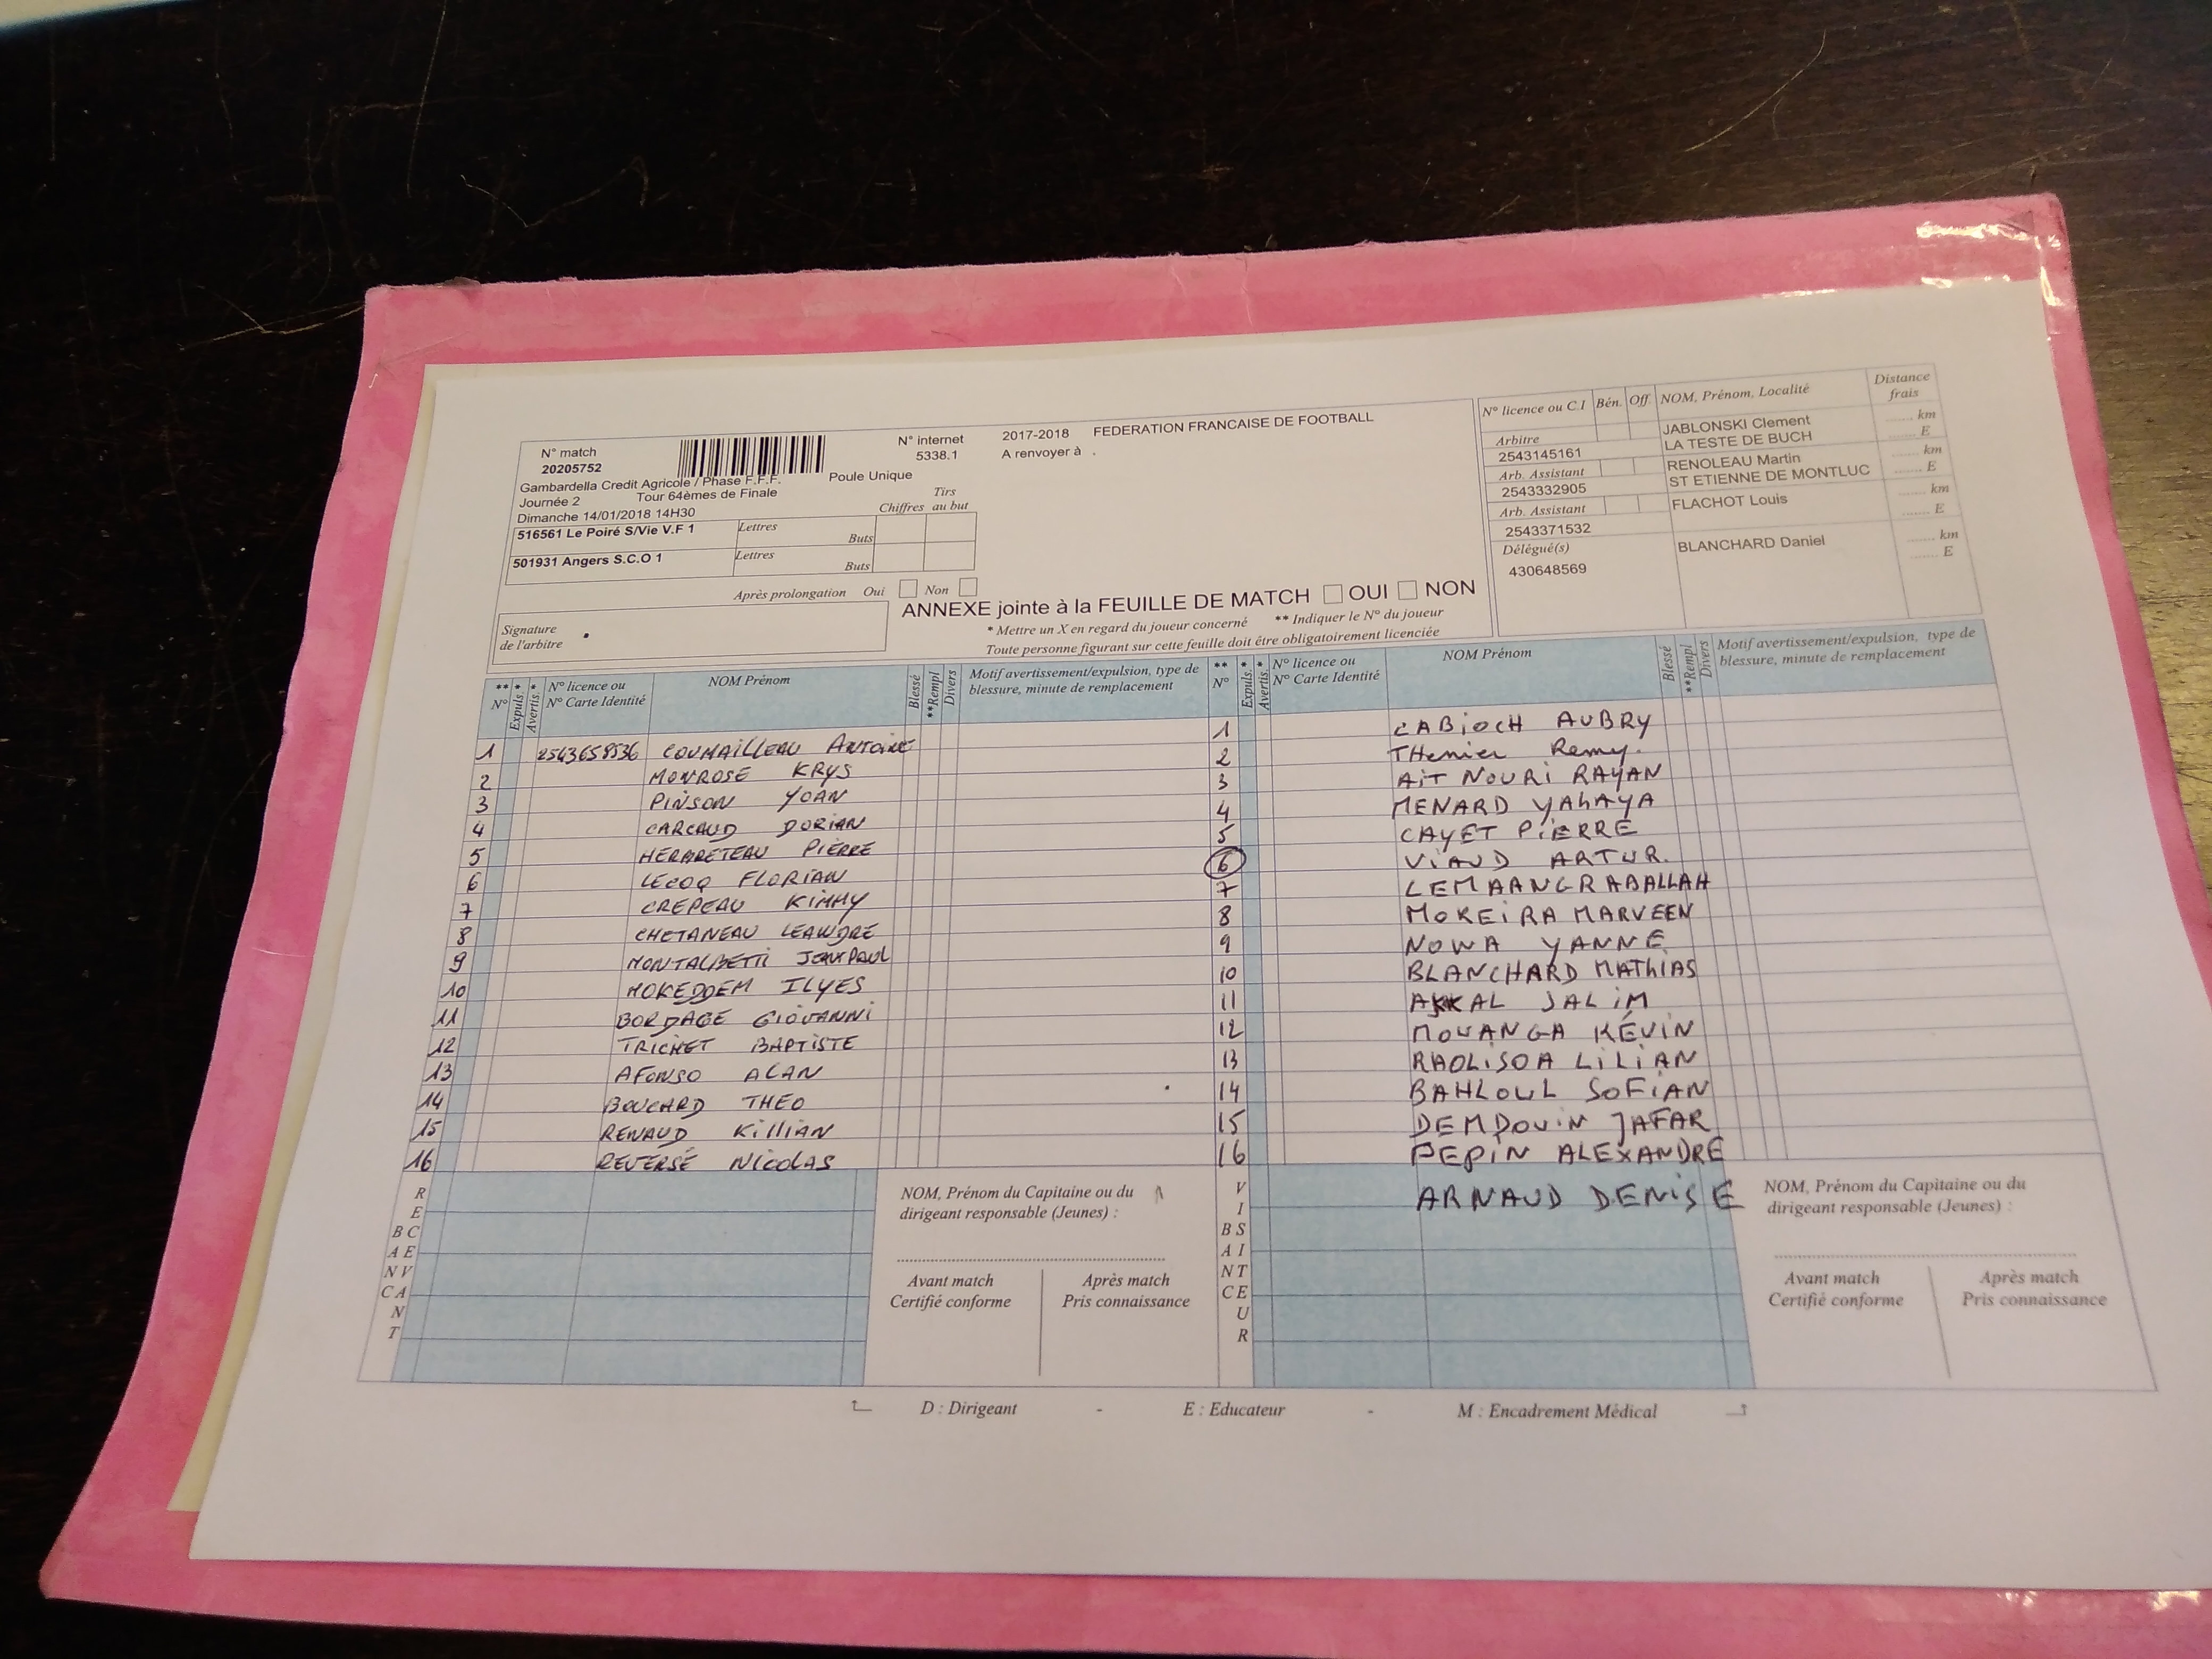 N° match
20205752
N° internet
5338.1
2017-2018 FEDERATION FRANCAISE DE FOOTBALL
A renvoyer à .
Gambardella Credit Agricole / Phase F.F.F. Poule Unique
Journée 2 Tour 64èmes de Finale
Dimanche 14/01/2018 14H30
Chiffres Tirs au but
516561 Le Poiré S/Vie V.F 1 Lettres Buts
501931 Angers S.C.O 1 Lettres Buts
Après prolongation Oui Non
Signature de l'arbitre
ANNEXE jointe à la FEUILLE DE MATCH OUI NON
* Mettre un X en regard du joueur concerné ** Indiquer le N° du joueur
Toute personne figurant sur cette feuille doit être obligatoirement licenciée
N° licence ou C.I Bén. Off. NOM, Prénom, Localité Distance frais
Arbitre
2543145161
JABLONSKI Clement
LA TESTE DE BUCH
...... km
...... E
Arb. Assistant
2543332905
RENOLEAU Martin
ST ETIENNE DE MONTLUC
...... km
...... E
Arb. Assistant
2543371532
FLACHOT Louis
...... km
...... E
Délégué(s)
430648569
BLANCHARD Daniel
...... km
...... E
** N° Expuls.* Avertis.* N° licence ou N° Carte Identité NOM Prénom Blessé **Rempl Divers Motif avertissement/expulsion, type de blessure, minute de remplacement
1 2543658536 COUMAILLEAU Antoine
2 MONROSE KRYS
3 PINSON YOAN
4 CARCAUD DORIAN
5 HERBRETEAU PIERRE
6 LECOQ FLORIAN
7 CREPEAU KIMMY
8 CHETANEAU LEANDRE
9 MONTALBETTI JEAN PAUL
10 MOKEDDEM ILYES
11 BORDAGE GIOVANNI
12 TRICHET BAPTISTE
13 AFONSO ALAN
14 BOUCARD THEO
15 RENAUD Killian
16 REVERSÉ NICOLAS
** N° Expuls.* Avertis.* N° licence ou N° Carte Identité NOM Prénom Blessé **Rempl Divers Motif avertissement/expulsion, type de blessure, minute de remplacement
1 CABIOCH AUBRY
2 THenier Remy.
3 AIT NOURI RAYAN
4 MENARD YAhAYA
5 CAYET PIERRE
6 VIAUD ARTUR.
7 LEMAANGR ABALLAH
8 MOREIRA MARVEEN
9 NOWA YANNE
10 BLANCHARD MAThiAS
11 AKKAL SALIM
12 MOUANGA KÉVIN
13 RAOLISOA LILIAN
14 BAHLOUL SOFIAN
15 DEMDOUIN JAFAR
16 PEPIN ALEXANDRE
ARNAUD DENISE
BANC RECEVANT
NOM, Prénom du Capitaine ou du
dirigeant responsable (Jeunes) :
Avant match
Certifié conforme
Après match
Pris connaissance
BANC VISITEUR
NOM, Prénom du Capitaine ou du
dirigeant responsable (Jeunes) :
Avant match
Certifié conforme
Après match
Pris connaissance
D : Dirigeant - E : Educateur - M : Encadrement Médical